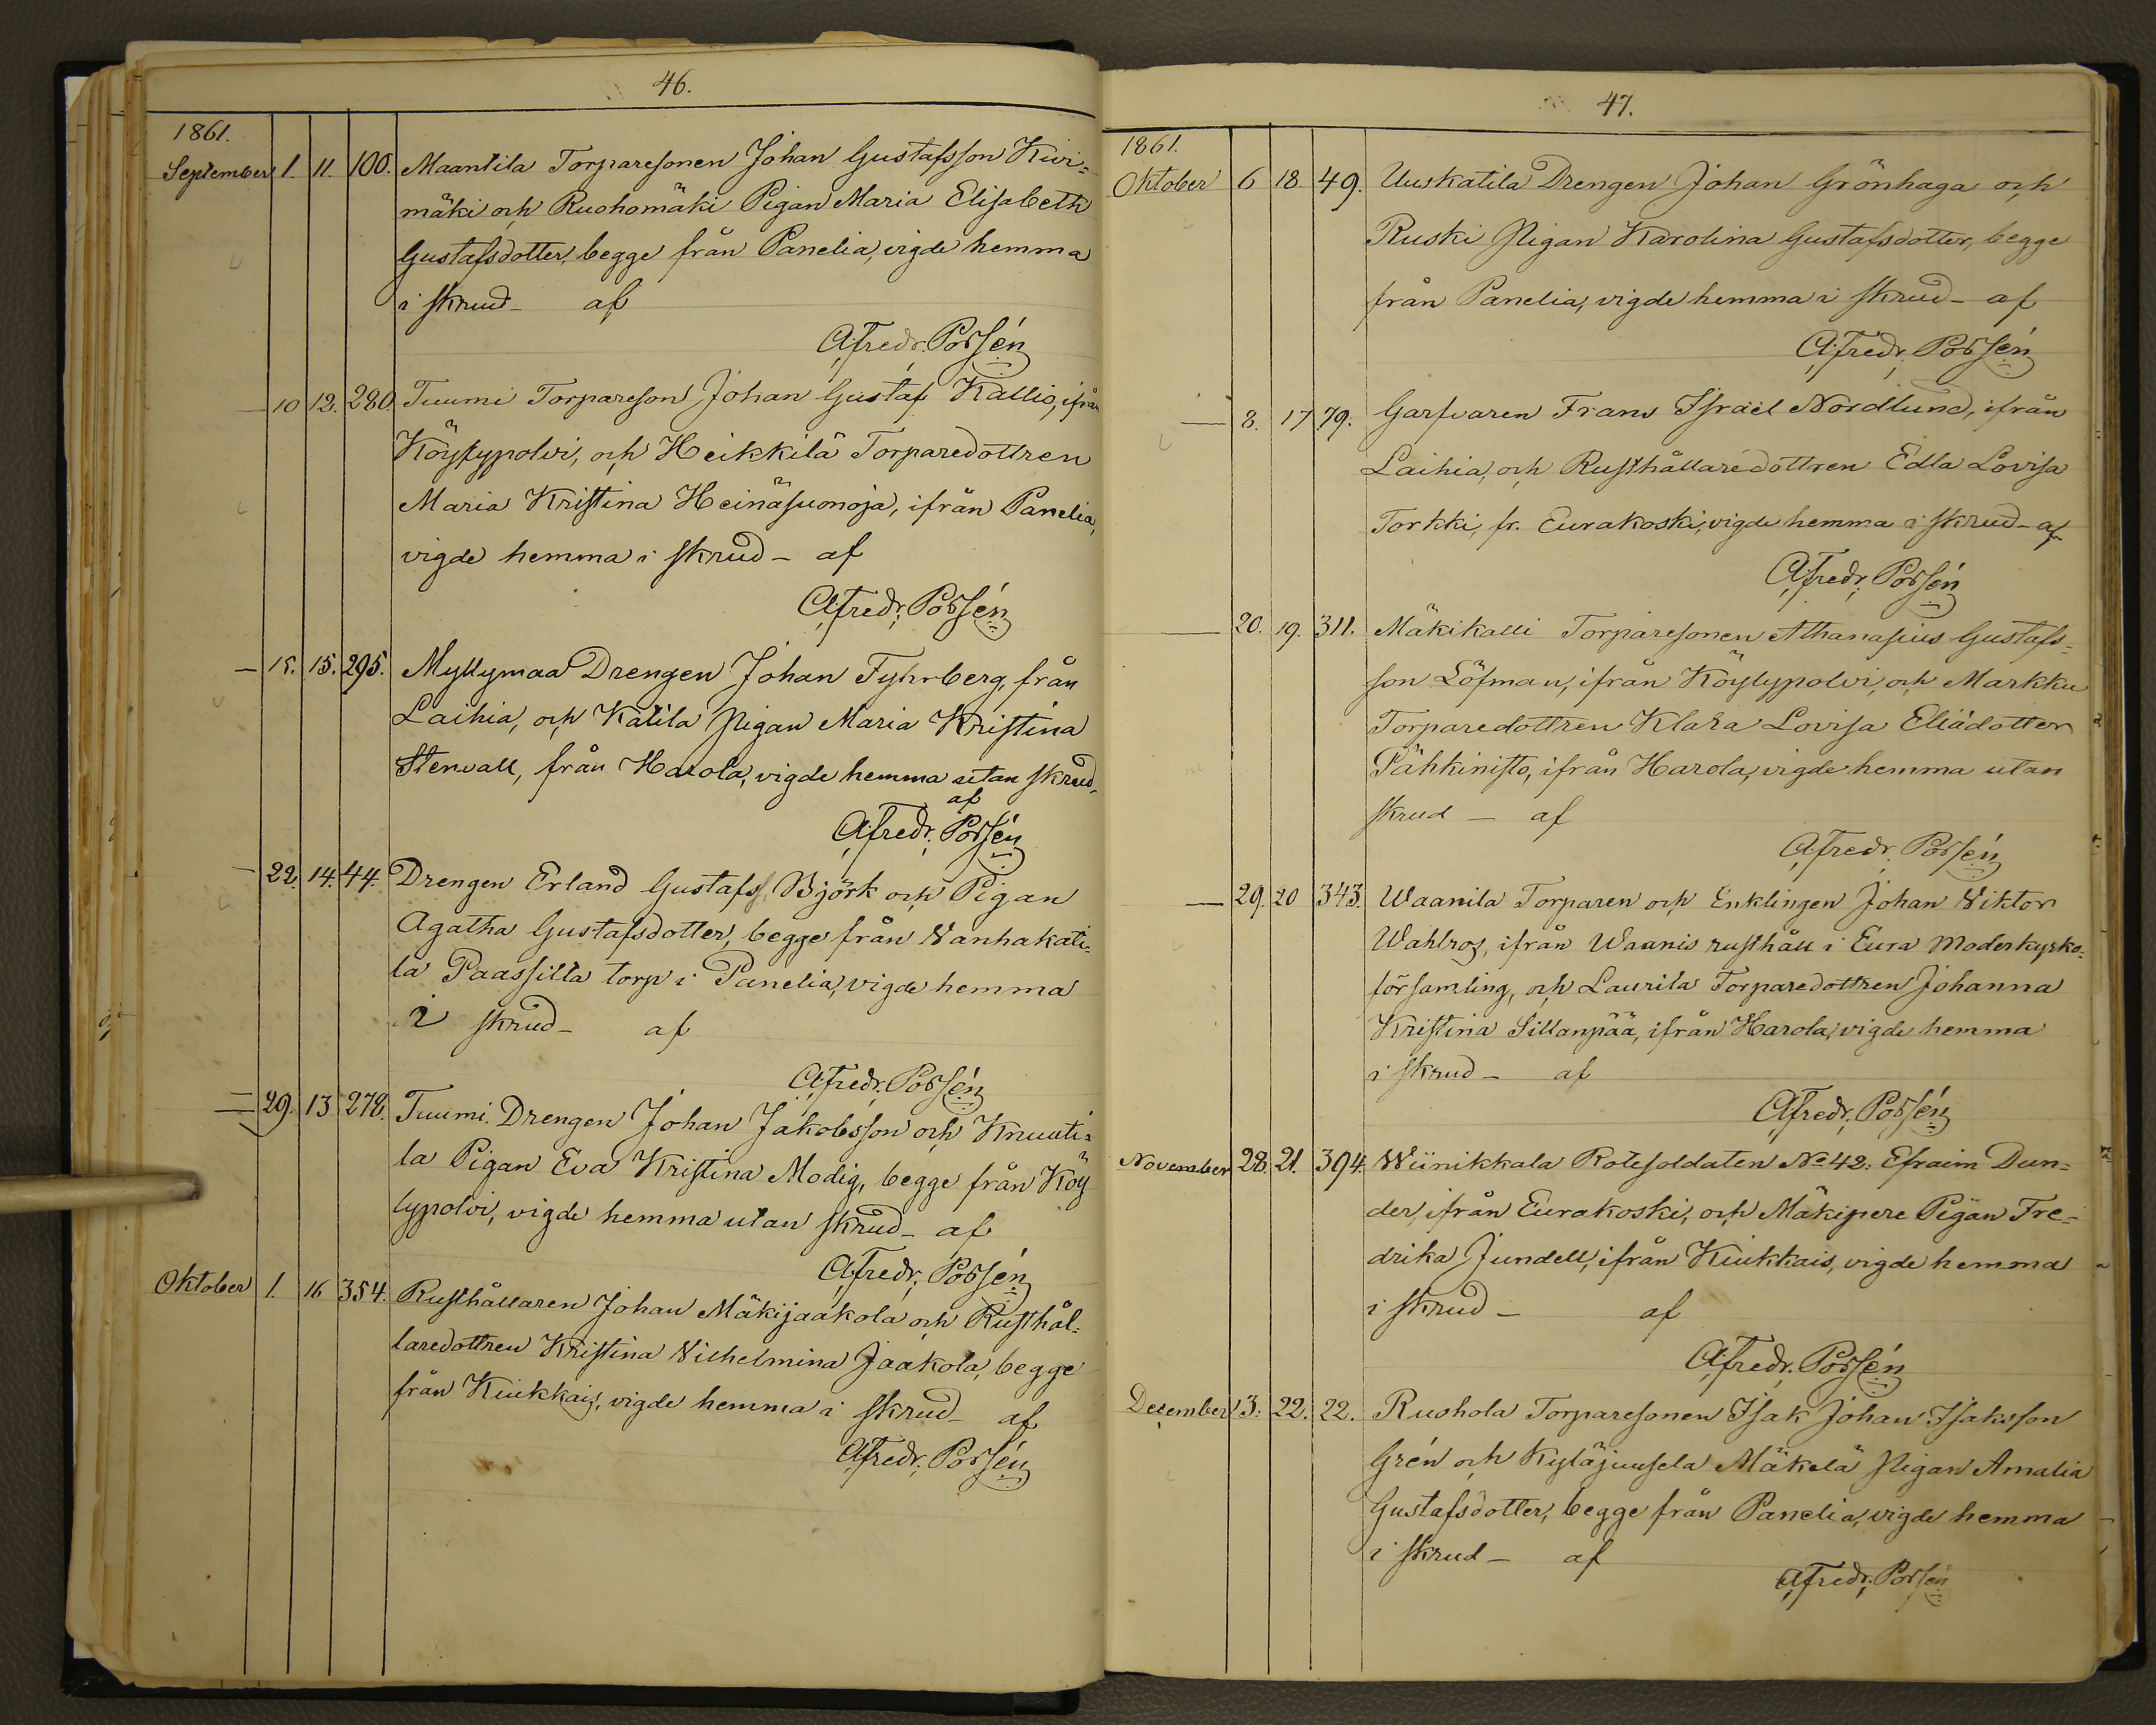 46.
1861.
September 1. 11. 100. Maantila Torparesonen Johan Gustafsson Kivi=
mäki och Ruohomäki Pigan Maria Elisabeth
Gustafsdotter, begge från Panelia, vigde hemma
i skrud - af
A. Fredr. Porsén
— 10 12. 280. Tuumi Torpareson Johan Gustaf Kallio, ifrån
Köylypolvi, och Heikkilä Torparedottren
Maria Kristina Heinäsuonoja, ifrån Panelia,
vigde hemma i skrud - af
A. Fredr. Porsén
— 15. 15. 295. Myllymaa Drengen Johan Fyhrberg, från
Laihia, och Katila Pigan Maria Kristina
Stenvall, från Harola, vigde hemma utan skrud
af
A. Fredr. Porsén
— 22. 14. 44. Drengen Erland Gustafss. Björk och Pigan
Agatha Gustafsdotter, begge från Vanhakati=
la Paassilta torp i Panelia, vigde hemma
i skrud - af
A. Fredr. Porsén
— 29. 13 278. Tuumi Drengen Johan Jakobsson och Knuuti=
la Pigan Eva Kristina Modig, begge från Köy
lypolvi, vigde hemma utan skrud - af
A. Fredr. Porsén
Oktober 1. 16 354. Rusthållaren Johan Mäkijaakola och Rusthål=
laredottren Kristina Vilhelmina Jaakola, begge
från Kiukkais, vigde hemma i skrud - af
A. Fredr. Porsén
47.
1861.
Oktober 6 18 49. Uuskatila Drengen Johan Grönhaga och
Ruski Pigan Karolina Gustafsdotter, begge
från Panelia, vigde hemma i skrud - af
A. Fredr. Porsén
— 8. 17 79. Garfvaren Frans Israël Nordlund, ifrån
Laihia, och Rusthållaredottren Edla Lovisa
Torkki, fr. Eurakoski, vigde hemma i skrud - af
A. Fredr. Porsén
— 20. 19. 311. Mäkikalli Torparesonen Athanasius Gustafs=
son Löfman, ifrån Köylypolvi, och Markku
Torparedottren Klara Lovisa Eliädotter
Pähkinistö, ifrån Harola, vigde hemma utan
skrud — af
A. Fredr. Porsén
— 29. 20 343. Waanila Torparen och Enklingen Johan Viktor
Wahlros, ifrån Waanis rusthåll i Eura Moderkyrko=
församling, och Laurila Torparedottren Johanna
Kristina Sillanpää, ifrån Harola, vigde hemma
i skrud - af
A. Fredr. Porsén
November 28. 21. 394. Wiinikkala Rotesoldaten No 42. Efraim Dun=
der, ifrån Eurakoski, och Mäkipere Pigan Fre=
drika Jundell, ifrån Kiukkais, vigde hemma
i skrud - af
A. Fredr. Porsén
December 3. 22. 22. Ruohola Torparesonen Isak Johan Isaksson
Grén och Kyläjuusela Mäkelä Pigan Amalia
Gustafsdotter, begge från Panelia, vigde hemma
i skrud - af
A. Fredr. Porsén